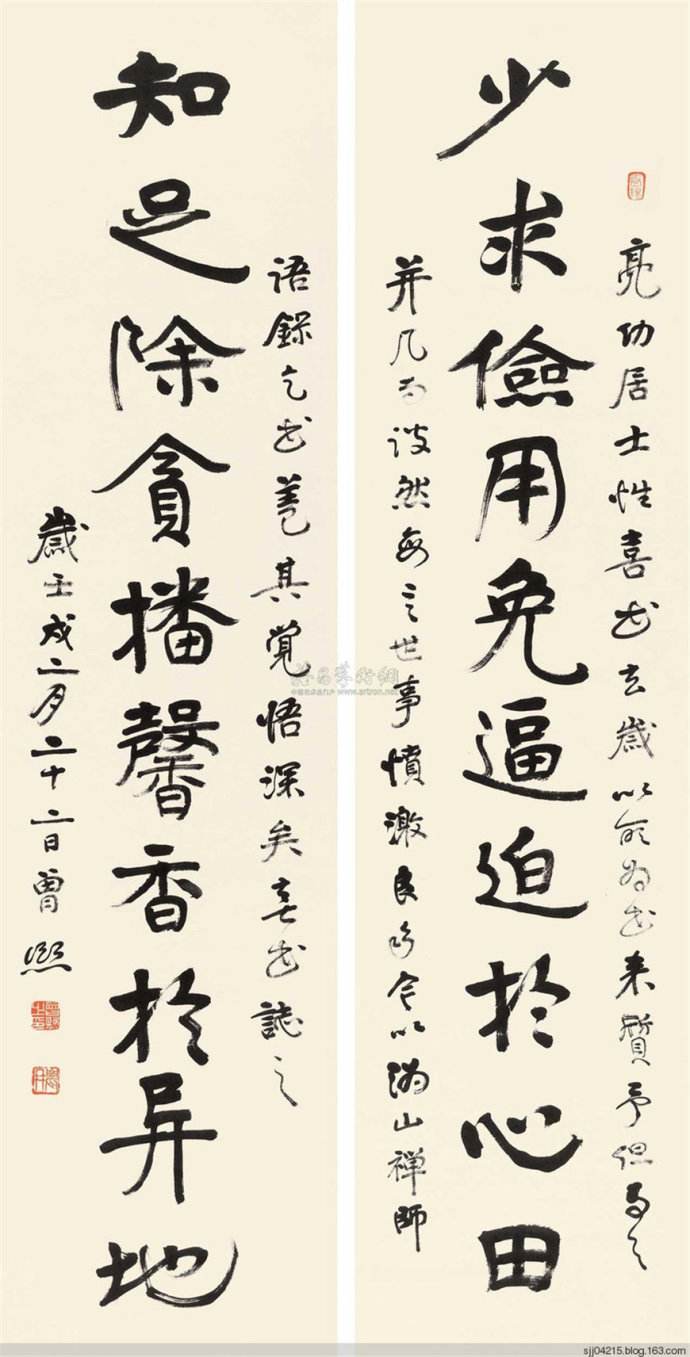 少求儉用免逼迫於心田
亮功居士性喜书去歲以所為书来質予但為之
并几而谈然每言世事憤激良久今以溈山禪師
知足除貪播馨香於异地
語錄乞书盖其覺悟深矣喜书誌之
歲壬戌二月二十二日曾熙
sjj04215.blog.163.com